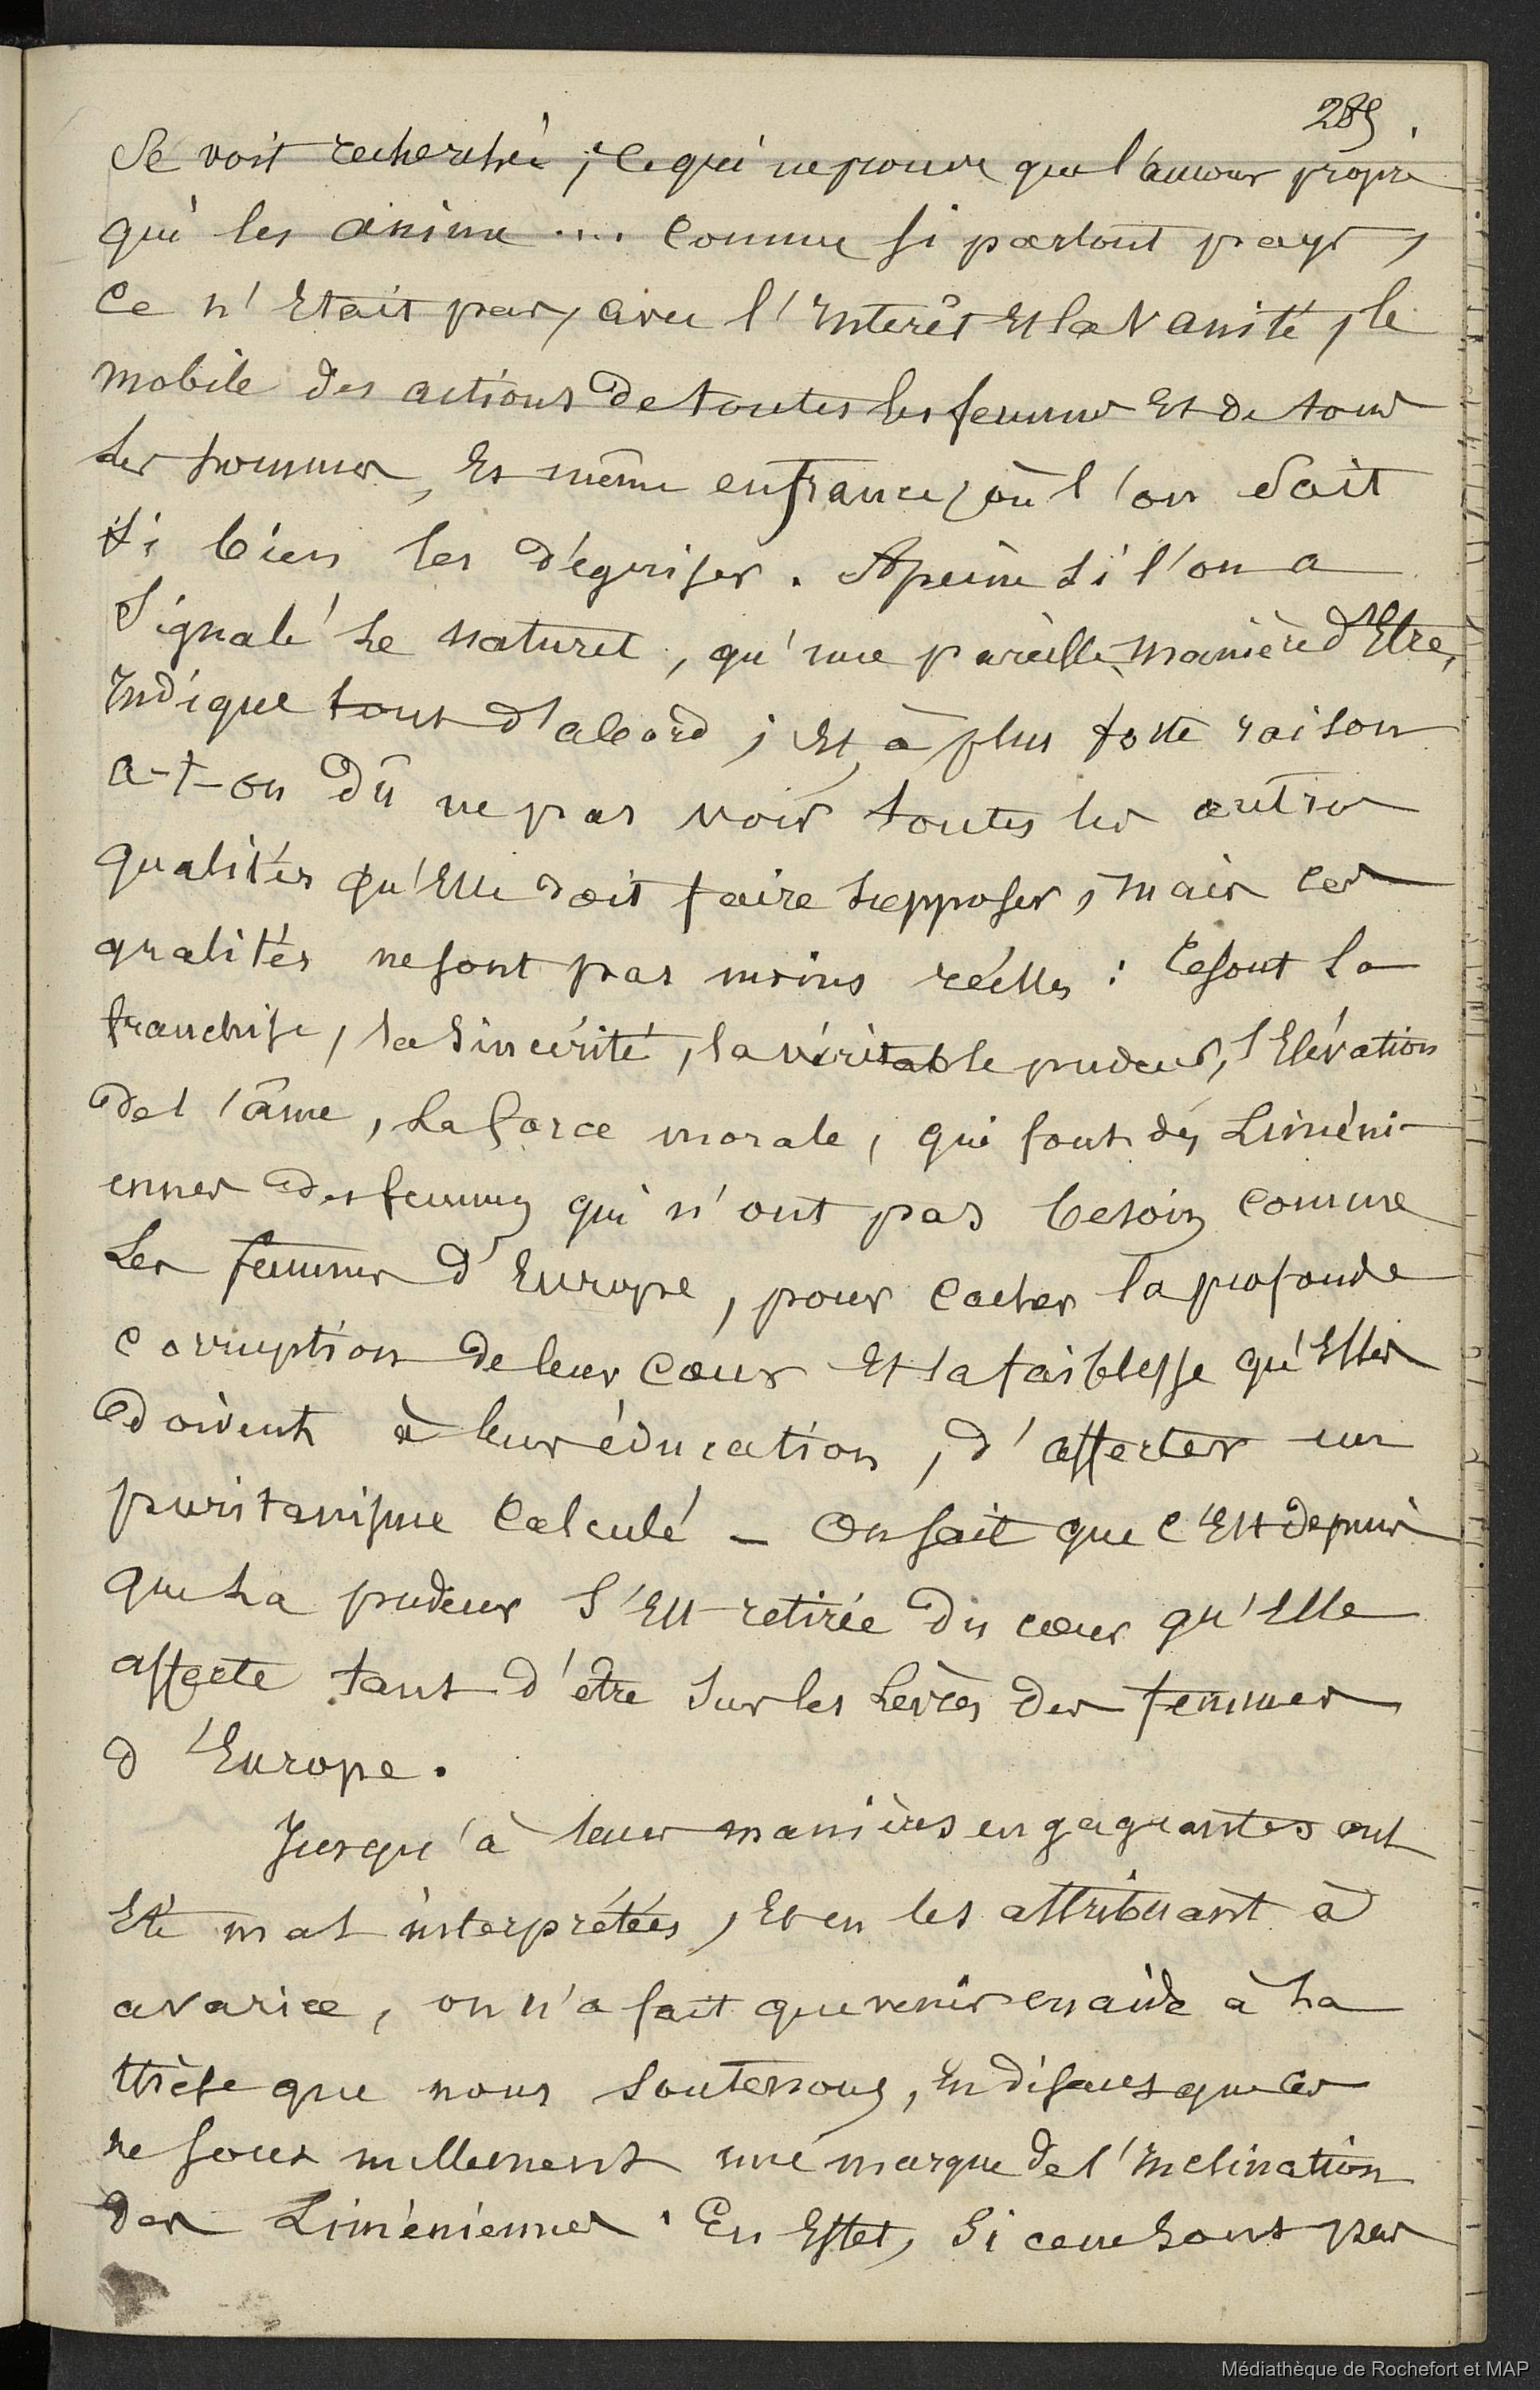 289.
Se voit recherchée ; Ce qui ne prouve que l'amour propre
qui les anime .... Comme si partout pays,
Ce n'Etait pas, avec l'Interêt Et la Vanité, le
mobile des actions de toutes les femmes Et de tous
Les hommes, Et même en france, où l'on Sait
Si bien les déguiser. A peine Si l'on a
Signalé Le naturel, qu'une pareille manière d'Etre,
Indique tout d'abord ; Et, à plus forte raison
a-t-on dû ne pas voir toutes les autres
qualités qu'Elle doit faire Supposer, mais ces
qualités ne sont pas moins réelles : Ce sont La
franchise, la Sincérité, la véritable pudeur, l'Elévation
de l'âme, La force morale, qui font des Liméni-
ennes des femmes qui n'ont pas besoin comme
Les femmes d'Europe, pour Cacher la profonde
Corruption de leur Cœur Et la faiblesse qu'Elles
doivent à leur éducation, d'affecter un
puritanisme Calculé _ On sait que C'Est depuis
que La pudeur S'Est retirée du cœur qu'Elle
affecte tant d'être Sur les Lèvres des femmes
d'Europe.
Jusqu'à leurs manières engageantes ont
Eté mal interprétées, Et en les attribuant à
avarice, on n'a fait que venir en aide à La
thèse que nous Soutenons, En disant que Ces
ne sont nullement une marque de l'Inclination
des Liméniennes. En Effet, Si ce ne Sont pas
Médiathèque de Rochefort et MAP